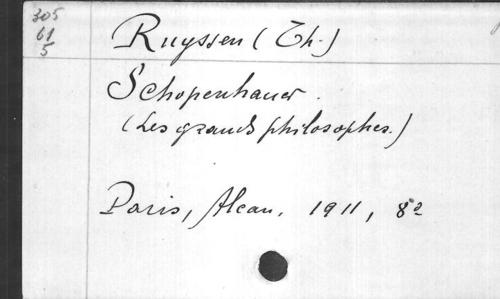 305
61
5
Ruyssen (Th.)
Schopenhauer.
(Les grands philosophes.)
Paris, Alcan, 1911, 8º